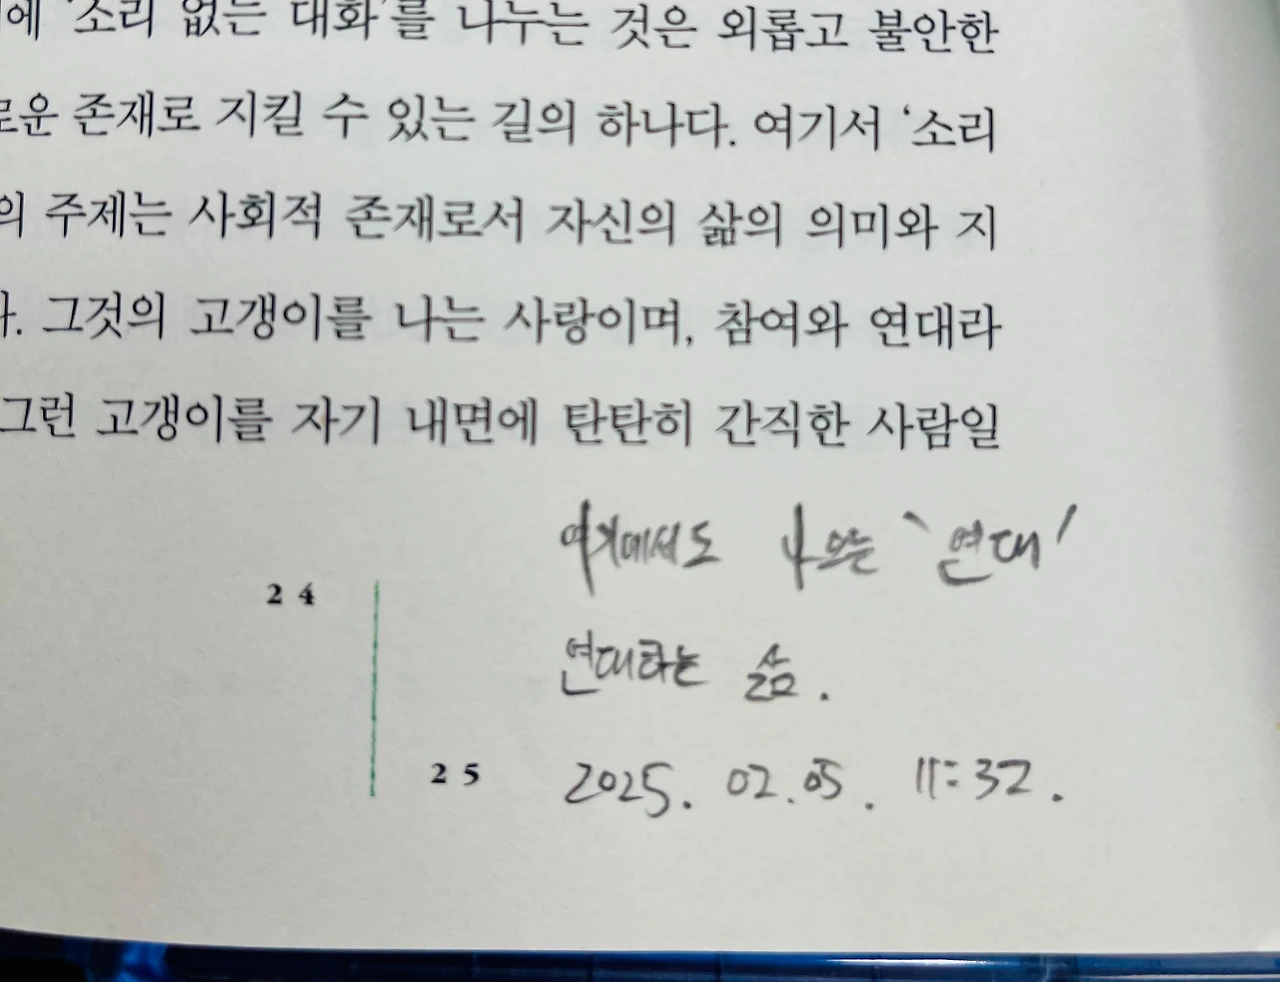 에 '소리 없는 대화'를 나누는 것은 외롭고 불안한
로운 존재로 지킬 수 있는 길의 하나다. 여기서 '소리
의 주제는 사회적 존재로서 자신의 삶의 의미와 지
다. 그것의 고갱이를 나는 사랑이며, 참여와 연대라
그런 고갱이를 자기 내면에 탄탄히 간직한 사람일
여기에서도 나오는 '연대'
24
연대하는 삶.
25
2025. 02. 05. 11:32.